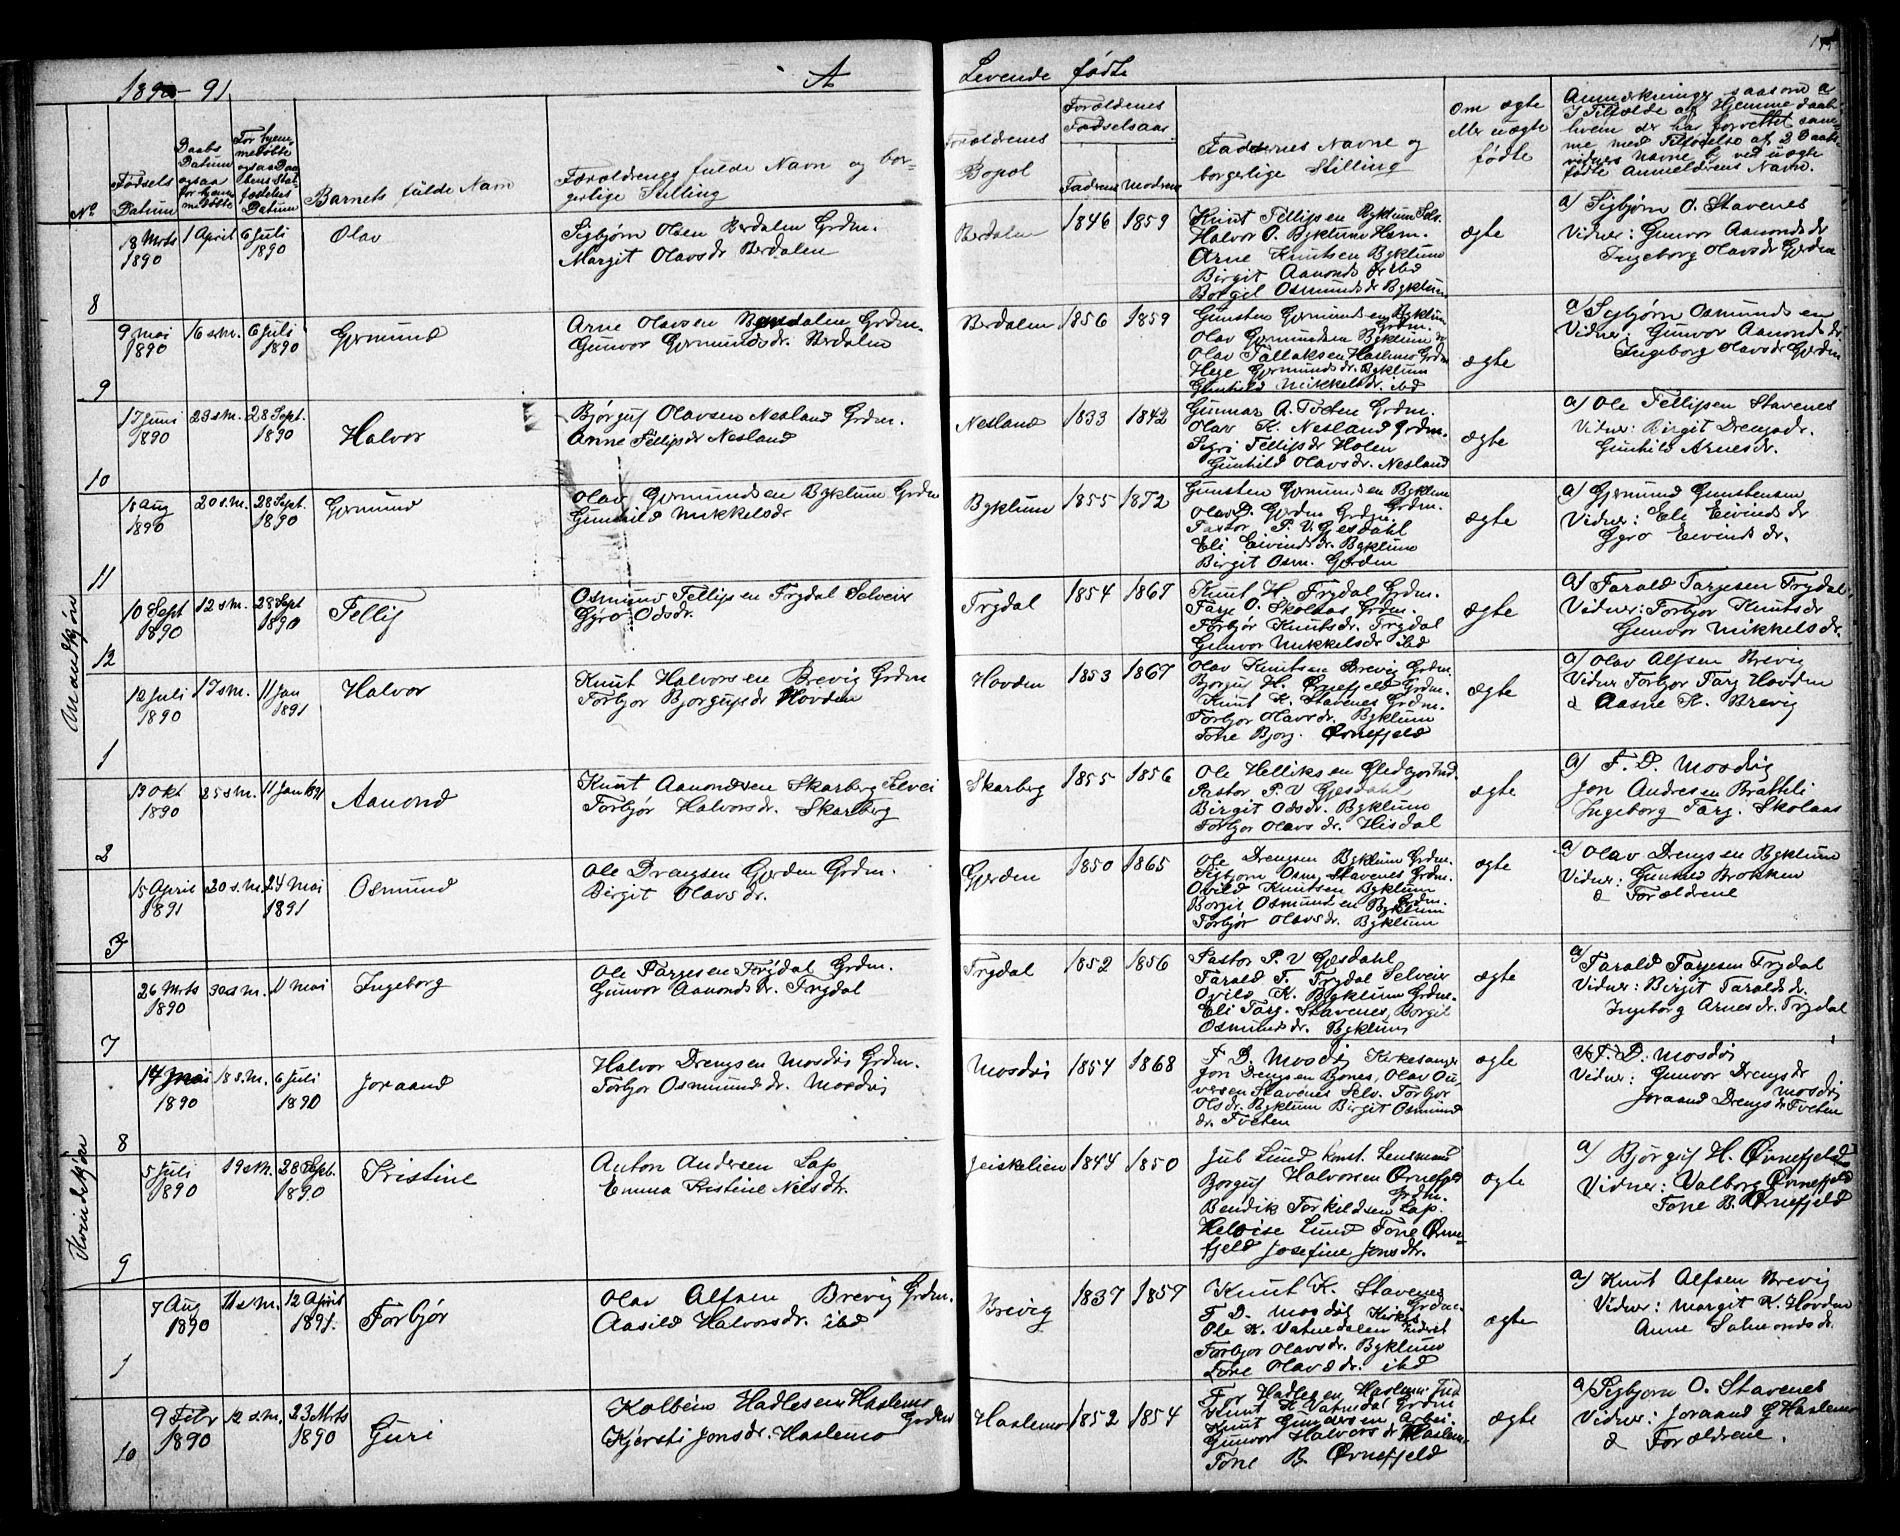 1890-91
A
Levende fødte
No
Fødsels Datum
Daabs Datum ogsaa for hjemmedøbte
For hjemmedøbte ogsaa Daabens Stadfestelses Datum
Barnets fulde Navn
Forældrenes fulde Navn og borgerlige Stilling
Forældrenes Bopæl
Forældrenes Fødselsaar
Fadrens Modrens
Faddernes Navne og borgerlige Stilling
Om ægte eller uægte fødte
Anmærkninger saasom a I Tilfælde af Hjemmedaab hvem der har forrettet samme med Tilføielse af 2 Daabsvidners Navne b ved uægte fødte Anmelderens Navn.
Mandkjøn
8 18 Mrts 1890 1 April 6 Juli 1890 Olav
Sigbjørn Olsen Berdalen Grdm.
Margit Olavsdr Berdalen
Berdalen 1846 1859
Knut Fellipsen Byklum Selv.
Halvor O. Byklum Hsm.
Arne Knutsen Byklum
Birgit Aanonds dr ibd
Borgil Osmundsdr Byklum
ægte
a) Sigbjørn O. Stavenes
Vidner: Gunvor Aanondsdr
Ingeborg Olavsdr Gjerden
9 9 Mai 1890 16 s.M. 6 Juli 1890 Gjermund
Arne Olavsen Berdalen Grdm.
Gunvor Gjermundsdr. Berdalen
Berdalen 1856 1859
Gunsten Gjermundsen Byklum Grdm.
Olav Gjermundsen Byklum
Olav Tallaksen Haslemo Grdm
Hege Gjermundsdr. Byklum
Gunhild Mikkelsdr. ibd
ægte
a) Sigbjørn Osmundsen
Vidner: Gunvor Aanondsdr
Ingeborg Olavsdr Gjerden
10 17 Juni 1890 23 s.M. 28 Sept. 1890 Halvor
Bjørguf Olavsen Nesland Grdm.
Anne Fellipsdr Nesland
Nesland 1833 1842
Gunnar A. Tveten Grdm.
Olav K. Nesland Grdm.
Sigri Fellipsdr Holen
Gunhild Olavsdr. Nesland
ægte
a) Ole Fellipsen Stavenes
Vidner: Birgit Drengsdr.
Gunhild Arnesdr.
11 18 Aug 1890 20 s.M. 28 Sept. 1890 Gjermund
Olav Gjermundsen Byklum Grdm
Gunhild Mikkelsdr
Byklum 1855 1852
Gunsten Gjermundsen Byklum
Olav D. Gjerden Grdm.
Pastor P. V. Gjesdahl
Eli Eivindsdr. Byklum
Birgit Osm. Gjerden
ægte
a) Gjermund Gunstensen
Vidner: Eli Eivindsdr
Gyro Eivindsdr.
12 10 Sept 1890 12 s.M. 28 Sept 1890 Fellip
Osmund Fellipsen Trydal Selveier
Gyro Odsdr.
Trydal 1854 1867
Knut H. Trydal Grdm.
Tarje O. Skolaas Grdm.
Torbjør Knutsdr. Trydal
Gunvor Mikkelsdr ibd
ægte
a) Tarald Tarjesen Trydal.
Vidner: Torbjør Knutsdr
Gunvor Mikkelsdr.
1 12 Juli 1890 17 s.M. 11 Jan 1891 Halvor
Knut Halvorsen Brevig Grdm
Torbjør Bjørgufsdr Hovden
Hovden 1853 1867
Olav Knutsen Brevig Grdm.
Borguf H. Ørnefjeld Grdm.
Knut K. Stavenes Grdm.
Torbjør Olavsdr. Byklum
Tone Bjorg. Ørnefjeld
ægte
a) Olav Alfsen Brevig
Vidner Torbjør Tarj Hovden
& Aasne K. Brevig
2 19 Okt 1890 25 s.M. 11 Jan 1891 Aanond
Knut Aanondsen Skarberg Selvei
Torbjør Halvorsdr. Skarberg
Skarberg 1855 1856
Ole Helliksen
Pastor P. V Gjesdahl
Birgit Odsdr. Byklum
Torbjør Olavsdr. Hisdal
ægte
a) T. D. Mosdøl
Jon Andresen Bratteli
Ingeborg Tarj. Skolaas
3 15 April 1891 20 s.M. 24 Mai 1891 Osmund
Ole Drengsen Gjerden Grdm.
Birgit Olavsdr.
Gjerden 1850 1865
Ole Drengsen Byklum Grdm.
Sigbjørn Osm. Stavenes Grdm.
Øvild Knutsen Byklum
Borgit Osmundsen Byklum Grdm.
Torbjør Olavsdr. Byklum
ægte
a) Olav Drengsen Byklum
Vidner: Gunhild Brokken
& Forældrene
Kvindekjøn
7 26 Mrts 1890 30 s.M. 11 Mai Ingeborg
Ole Tarjesen Trydal Grdm.
Gunvor Aanondsdr. Trydal
Trydal 1852 1856
Pastor P. V Gjesdahl
Tarald T. Trydal Selveier
Øvild K. Byklum Grdm.
Eli Tarj. Stavenes, Borgil
Osmundsdr. Byklum
ægte
a) Tarald Tarjesen Trydal
Vidner: Birgit Taraldsdr.
Ingeborg Arnesdr. Trydal
8 14 Mai 1890 18 s.M. 6 Juli 1890 Joraand
Halvor Drengsen Mosdøl Grdm.
Torbjør Osmundsdr. Mosdøl
Mosdøl 1854 1868
T. D. Mosdøl Kirkesanger
Jon Drengsen Bones, Olav Ou-
versen Stavenes Selv. Torbjør
Olsdr. Byklum Birgit Osmund
dr. Tveten
ægte
a) T. D. Mosdøl
Vidner: Gunvor Drengsdr Mosdøl
Joraand Drengsdr Tveten
9 5 Juli 1890 19 s.M. 28 Sept. 1890 Kristine
Anton Andersen Lap
Emma Kristine Nilsdtr.
Jeiskelien 1844 1850
Jul Lund Konst. Lensmand
Borguf Halvorsen Ørnefjeld Grdm.
Bendik Torkildsen Lap.
Heloise Lund Tone Ørne-
fjeld Josefine Jonsdtr.
ægte
a) Bjørguf H. Ørnefjeld
Vidner: Valborg Ørnefjeld
Tone B. Ørnefjeld
1 7 Aug 1890 11 s.M. 12 April 1891. Torbjør
Olav Alfsen Brevig Grdm.
Aasild Halvorsdr. ibd
Brevig 1837 1857
Knut K. Stavenes Grdm.
T. D. Mosdøl Kirkes
Ole K. Vatnedalen
Torbjør Olavsdr. Byklum
Tone Olavsdr. ibd
ægte
a) Knut Alfsen Brevig
Vidner: Margit K. Hovden
Anne Salmondsdr.
10 9 Febr 1890 12 s.M. 23 Mrts 1890 Guri
Kolbein Hadlesen Haslemo Grdm
Kjersti Jonsdr. Haslemo
Haslemo 1852 1854
Tor Hadlesen Haslemo
Knut K Vatnedal Grdm
Knut Gundersen Arbei.
Gunvor Halvorsdr Haslem.
Tone B. Ørnefjeld
ægte
a) Sigbjørn O. Stavenes
Vidner: Joraand G Haslemo
& Forældrene.